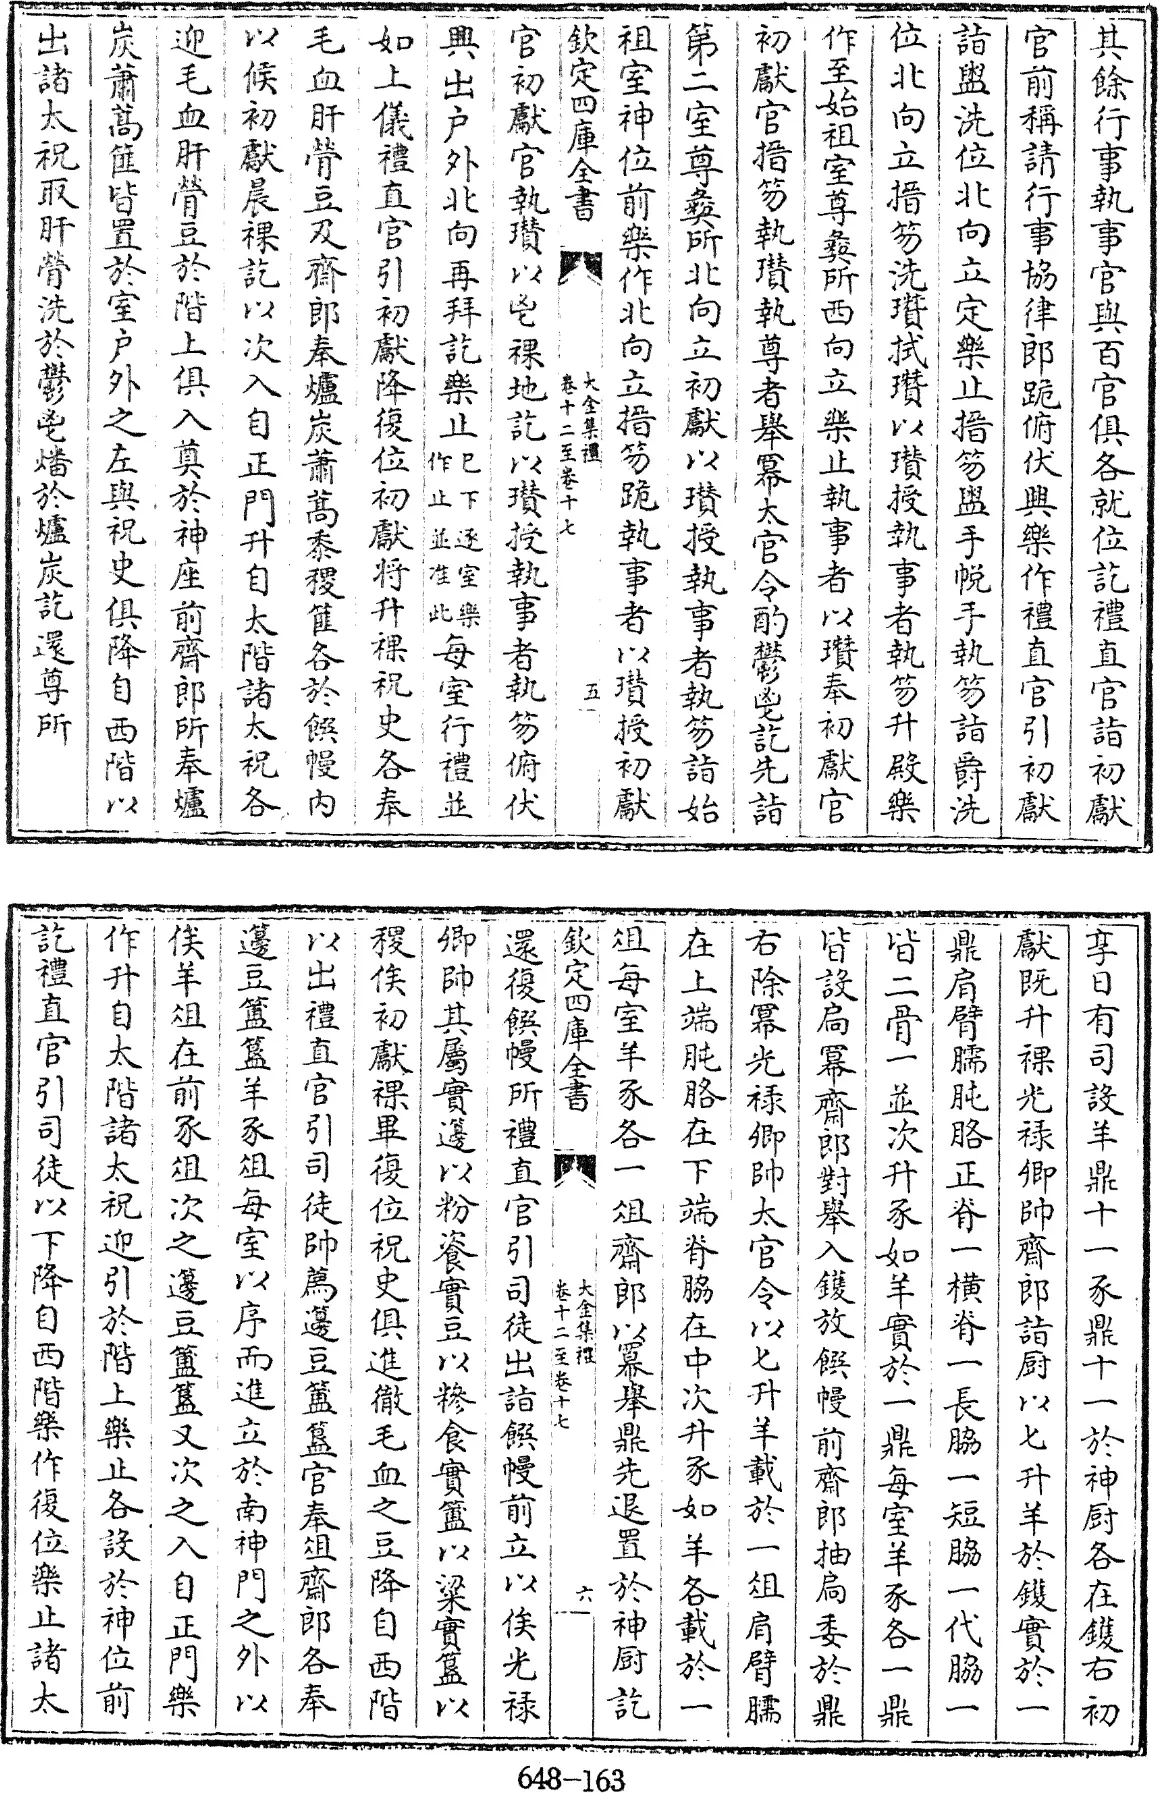 其餘行事執事官與百官俱各就位訖禮直官詣初獻
官前稱請行事協律郎跪俯伏興樂作禮直官引初獻
詣盥洗位北向立定樂止搢笏盥手帨手執笏詣爵洗
位北向立搢笏洗瓚拭瓚以瓚授執事者執笏升殿樂
作至始祖室尊彝所西向立樂止執事者以瓚奉初獻官
初獻官搢笏執瓚執尊者舉冪太官令酌鬱鬯訖先詣
第二室尊彝所北向立初獻以瓚授執事者執笏詣始
祖室神位前樂作北向立搢笏跪執事者以瓚授初獻
欽定四庫全書
大金集禮
卷十二至卷十七
五
官初獻官執瓚以鬯祼地訖以瓚授執事者執笏俯伏
興出户外北向再拜訖樂止已下逐室樂作止並准此每室行禮並
如上儀禮直官引初獻降復位初獻将升祼祝史各奉
毛血肝膋豆及齋郎奉爐炭蕭蒿黍稷篚各於饌幔内
以候初獻晨祼訖以次入自正門升自太階諸太祝各
迎毛血肝膋豆於階上俱入奠於神座前齋郎所奉爐
炭蕭蒿篚皆置於室户外之左與祝史俱降自西階以
出諸太祝取肝膋洗於鬱鬯燔於爐炭訖還尊所
享日有司設羊鼎十一豕鼎十一於神厨各在鑊右初
獻既升祼光禄卿帥齋郎詣厨以匕升羊於鑊實於一
鼎肩臂臑肫胳正脊一横脊一長脇一短脇一代脇一
皆二骨一並次升豕如羊實於一鼎每室羊豕各一鼎
皆設扃冪齋郎對舉入鑊放饌幔前齋郎抽扃委於鼎
右除冪光禄卿帥太官令以匕升羊載於一俎肩臂臑
在上端肫胳在下端脊脇在中次升豕如羊各載於一
俎每室羊豕各一俎齋郎以冪舉鼎先退置於神厨訖
欽定四庫全書
大金集禮
卷十二至卷十七
六
還復饌幔所禮直官引司徒出詣饌幔前立以俟光禄
卿帥其屬實籩以粉餈實豆以糝食實簠以粱實簋以
稷俟初獻祼畢復位祝史俱進徹毛血之豆降自西階
以出禮直官引司徒帥薦籩豆簠簋官奉俎齋郎各奉
籩豆簠簋羊豕俎每室以序而進立於南神門之外以
俟羊俎在前豕俎次之籩豆簠簋又次之入自正門樂
作升自太階諸太祝迎引於階上樂止各設於神位前
訖禮直官引司徒以下降自西階樂作復位樂止諸太
648-163